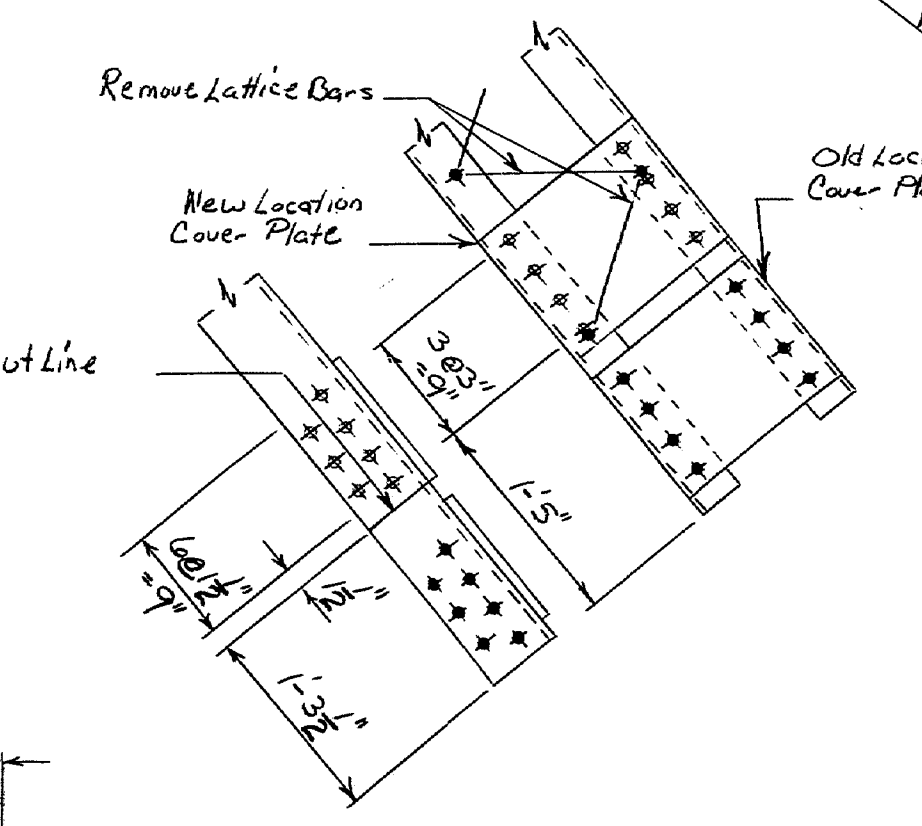 Remove Lattice Bars
Old Loc
Cover Pl
New Location
Cover Plate
ut Line
3 @ 3"
= 9"
1'-5"
6 @ 1 1/2"
= 9"
1 1/2"
1'-3 1/2"